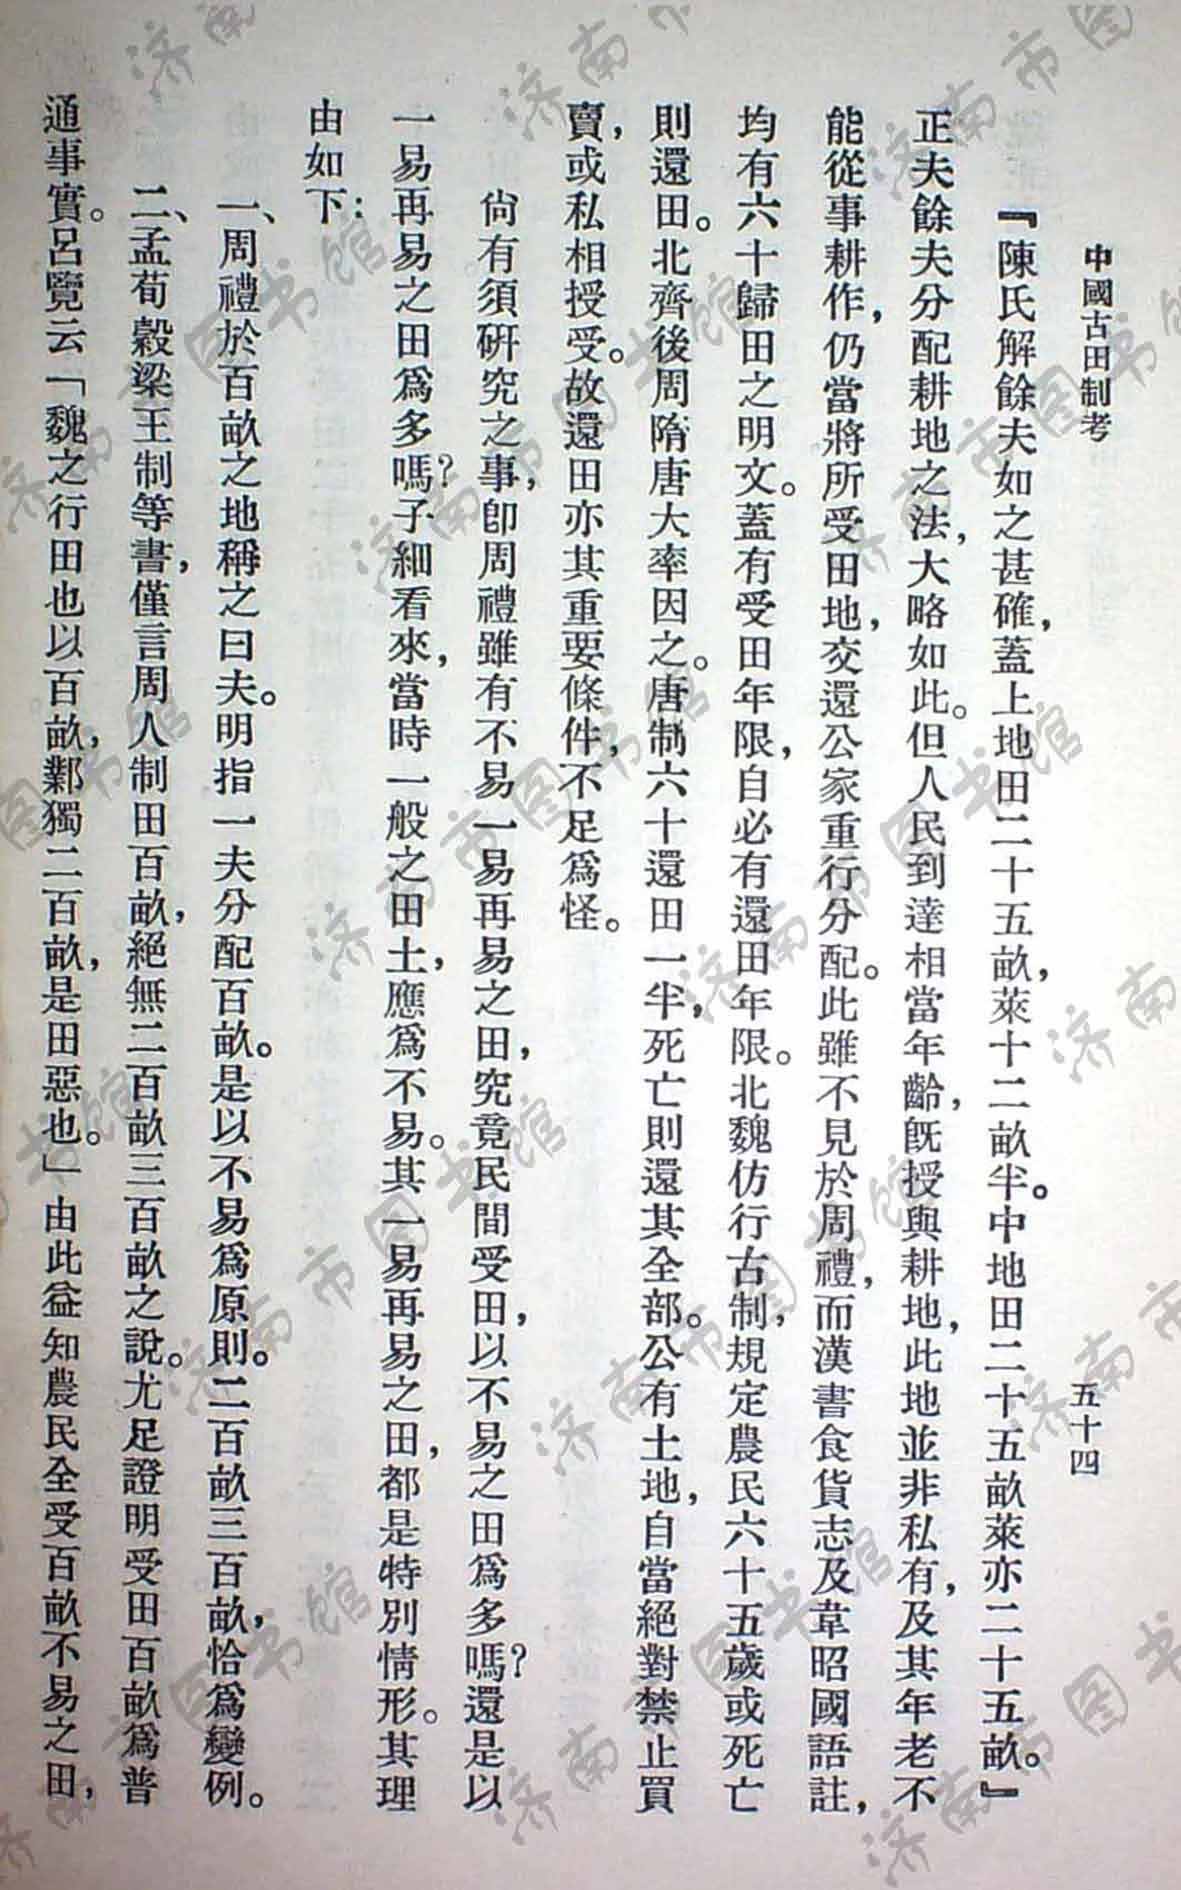 中國古田制考
五十四
『陳氏解餘夫如之甚確，蓋上地田二十五畝，萊十二畝半。中地田二十五畝萊亦二十五畝。』
正夫餘夫分配耕地之法，大略如此。但人民到達相當年齡，旣授與耕地，此地並非私有，及其年老不
能從事耕作，仍當將所受田地，交還公家重行分配。此雖不見於周禮，而漢書食貨志及韋昭國語註，
均有六十歸田之明文。蓋有受田年限，自必有還田年限。北魏仿行古制，規定農民六十五歲或死亡
則還田。北齊後周隋唐大率因之。唐制六十還田一半，死亡則還其全部。公有土地，自當絕對禁止買
賣，或私相授受。故還田亦其重要條件，不足爲怪。
尙有須硏究之事，卽周禮雖有不易一易再易之田，究竟民間受田，以不易之田爲多嗎？還是以
一易再易之田爲多嗎？子細看來，當時一般之田土，應爲不易。其一易再易之田，都是特別情形。其理
由如下：
一、周禮於百畝之地稱之曰夫。明指一夫分配百畝。是以不易爲原則。二百畝三百畝，恰爲變例。
二、孟荀穀梁王制等書，僅言周人制田百畝，絕無二百畝三百畝之說。尤足證明受田百畝爲普
通事實。呂覽云「魏之行田也以百畝，鄴獨二百畝，是田惡也。」由此益知農民全受百畝不易之田，
济南市图书馆
济南市图书馆
济南市图书馆
济南市图书馆
济南市图书馆
济南市图书馆